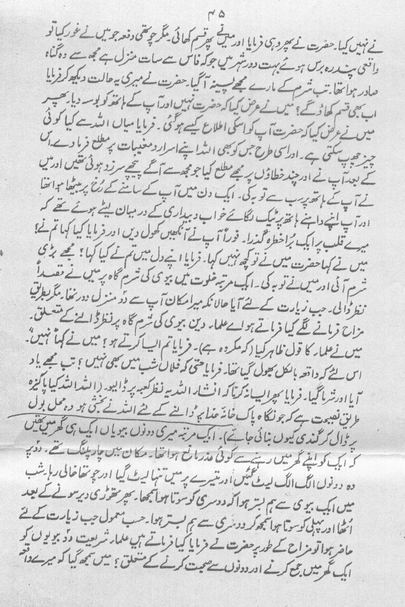 ۴۵
نے نہیں کیا۔ حضرت نے پھر وہی فرمایا اور میں نے پھر قسم کھائی۔ مگر چوتھی دفعہ جو میں نے غور کیا تو
واقعی پندرہ برس ہوئے بہت دور شہر میں جو کہ فاس سے سات منزل ہے مجھ سے وہ گناہ
صادر ہوا تھا۔ تب شرم کے مارے مجھے پسینہ آگیا۔ حضرت نے میری یہ حالت دیکھ کر فرمایا
اب بھی قسم کھاؤ گے؟ میں نے عرض کیا کہ حضرت نہیں اور آپ کے ہاتھ کو بوسہ دیا۔ پھر
میں نے عرض کیا کہ حضرت آپ کو اسکی اطلاع کیسے ہوگئی۔ فرمایا میاں اللہ سے کیا کوئی
چیز چھپ سکتی ہے۔ اور اسی طرح جس کو بھی اللہ اپنے اسرار و مغیبات پر مطلع فرما دے۔ اس
کے بعد آپ نے اور چند خطاؤں پر مجھے مطلع کیا جو مجھ سے آگے پیچھے سرزد ہوئی تھیں اور میں
نے آپ کے ہاتھ پر سب سے توبہ کی۔ ایک دن میں آپ کے سامنے کے رُخ پر بیٹھا ہوا تھا
اور آپ اپنے داہنے ہاتھ پر ٹیک لگائے خواب و بیداری کے درمیان لیٹے ہوئے تھے کہ
میرے قلب پر ایک بُرا خطرہ گذرا۔ فوراً آپ نے آنکھیں کھول دیں اور فرمایا کیا کہا تم نے؟
میں نے کہا حضرت میں نے تو کچھ نہیں کہا۔ فرمایا اپنے دل میں تم نے کیا کہا؟ مجھے بڑی
شرم آئی اور میں نے توبہ کی۔ ایک مرتبہ خلوت میں بیوی کی شرم گاہ پر میں نے قصداً
نظر ڈالی۔ جب زیارت کے لئے آیا حالانکہ میرا مکان آپ سے دو منزل دور تھا۔ مگر بطریق
مزاح فرمانے لگے کیا فرماتے ہو اے علمار دین بیوی کی شرم گاہ پر نظر ڈالنے کے متعلق۔
میں نے علمار کا قول ظاہر کیا (کہ مکروہ ہے)۔ فرمایا تم ایسا کرتے ہو؟ میں نے کہا نہیں"
اس لئے کہ واقعہ بالکل بھول گیا تھا۔ فرمایا حتیٰ کہ فلاں شب میں بھی نہیں؟ تب مجھے یاد
آیا اور شرما گیا۔ فرمایا پھر ایسا نہ کرنا کہ انشار اللہ یہ نظر کعبہ پر ڈالیو۔ (اللہ اللہ کیا پاکیزہ
طریق نصیحت ہے کہ جو نگاہ پاک خانۂ خدا پر ڈالنے کے لئے اللہ نے بخشی ہو وہ محل بول
پر ڈال کر گندی کیوں بنائی جائے)۔ ایک مرتبہ میری دونوں بیویاں ایک ہی گھر میں تھیں
کہ ایک کو اپنے گھر میں رہنے سے کوئی عذر مانع ہوا تھا۔ مکان میں چار پلنگ تھے۔ دو پر
وہ دونوں الگ الگ لیٹ گئیں اور تیسرے پر میں تنہا لیٹ گیا اور چوتھا خالی رہا۔ شب
میں ایک بیوی سے ہم بستر ہوا کہ دوسری کو سوتا ہوا سمجھا۔ پھر تھوڑی دیر سونے کے بعد
اُٹھا اور پہلی کو سوتا ہوا سمجھ کر دوسری سے ہم بستر ہوا۔ حسب معمول جب زیارت کے لئے
حاضر ہوا تو مزاح کے طور پر حضرت نے فرمایا کیا فرماتے ہیں علمار شریعت دو بیویوں کو
ایک گھر میں جمع کرنے اور دونوں سے صحبت کرنے کے متعلق؟ میں سمجھ گیا کہ میرے واقعہ